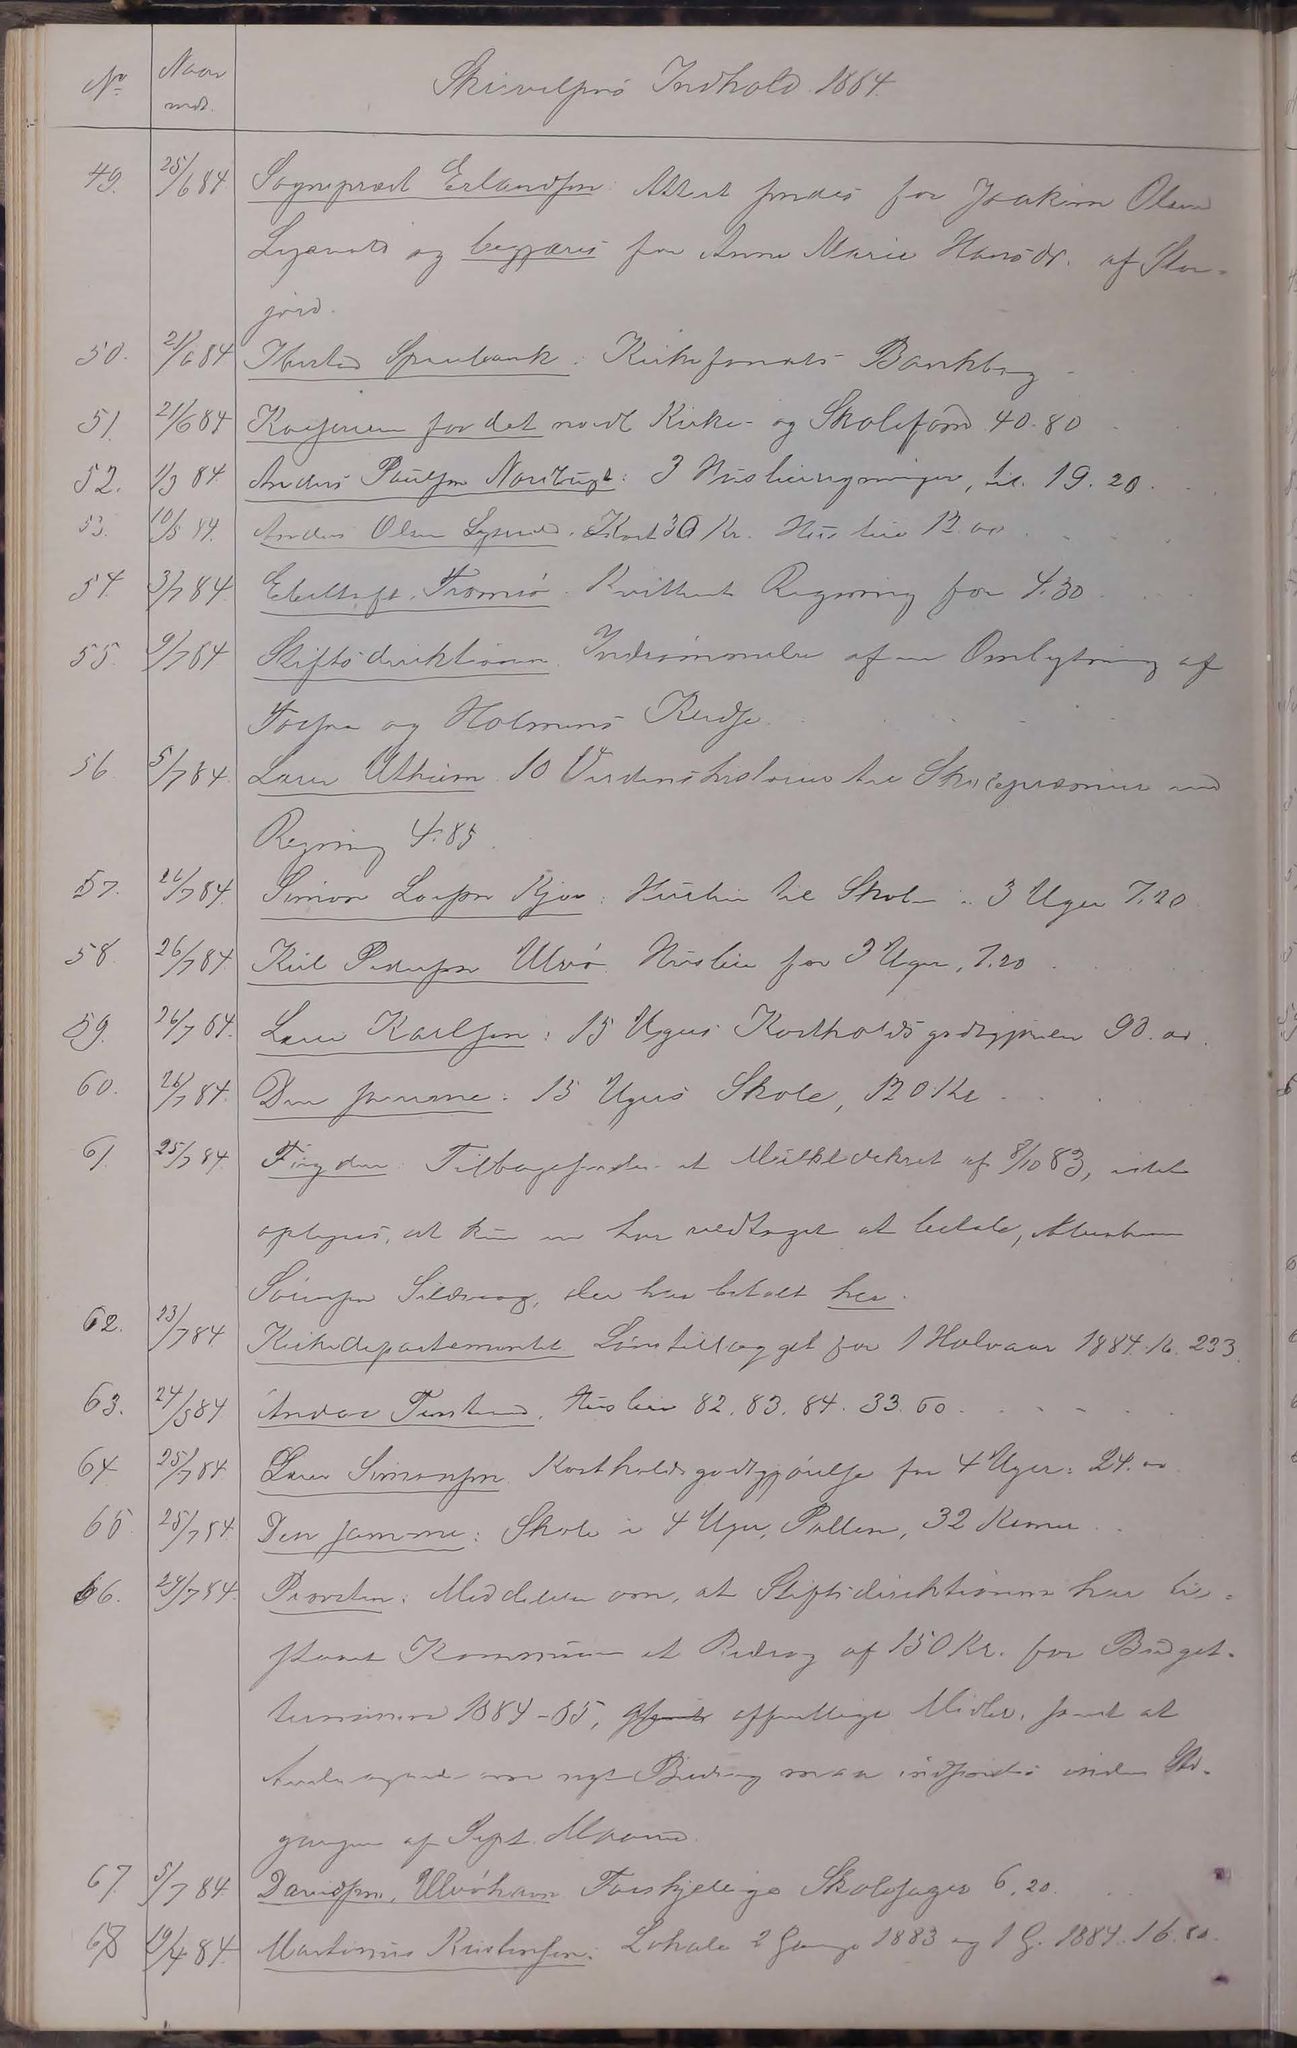 No Naar mdt. Skrivelsens Indhold 1884
49. 25/6 84 Sogneprest Erlandsen: Attest sendes for Joakim Olsen
Lysvold og begjæres for Anne Marie Hansdr. af Stor-
jord.
50. 21/6 84 Ibestad Sparebank: Kirkefondets Bankbog
51. 21/6 84 Kassereren for det nordl Kirke- og Skolefond 40.80
52. 1/3 84 Anders Paulsen 3 Husleieregninger, til. 19.20.
53. 10/3 84. Anders Olsen Kost 30 Kr. Husleie 12.00
54. 3/7 84 Ebeltoft, Tromsö. Kvitteret Regning for 4.30
55. 9/7 84 Stiftsdirektionen Indrømmelse af en Ombytning af
og Holmens Kredse
56. 5/7 84. Lærer Utheim 10 Verdenshistorier til Skolepræmier med
Regning 4.85.
57. 26/7 84. Simon Larsen Husleie til Skole i 3 Uger 7.20
58. 26/7 84. Kiil Pedersen Ulvö. Husleie for 3 Uger, 7.20
59. 26/7 84. Lærer Karlsen: 15 Ugers Kostholdsgodtgjørelse 90.00.
60. 26/7 84. Den samme: 15 Ugers Skole, 120 Kr
61. 25/7 84. Fogden: Tilbagesender et Mulktdekret af 8/10 83, idet
oplyses, at kun en har vedtaget at betale,
Sörensen Sildvaag, der har betalt her.
62. 23/7 84. Kirkedepartementet Lønstillægget for 1 Halvaar 1884. Kr. 233
63. 24/5 84 Andor Husleie 82. 83. 84. 33.60
64. 25/7 84 Lærer Simonsen Kostholdsgodtgjørelse for 4 Uger: 24.00
65. 25/7 84. Den samme: Skole i 4 Uger, Pollen, 32 Kroner
66. 24/7 84. Provsten: Meddelelse om, at Stiftsdirektionen har til-
staaet Kommunen et Bidrag af 150 Kr. for Budget-
terminen 1884-85, offentlige Midler, samt at
Andragende om nyt Bidrag maa indsendes inden Ud-
gangen af Sept. Maaned.
67. 5/7 84 Davidsen, Ulvöhavn Forskjellige Skolesager 6.20.
68 19/4 84. Martinus Kristensen: Lokale 2 Gange 1883 og 1 G. 1884. 16.80.